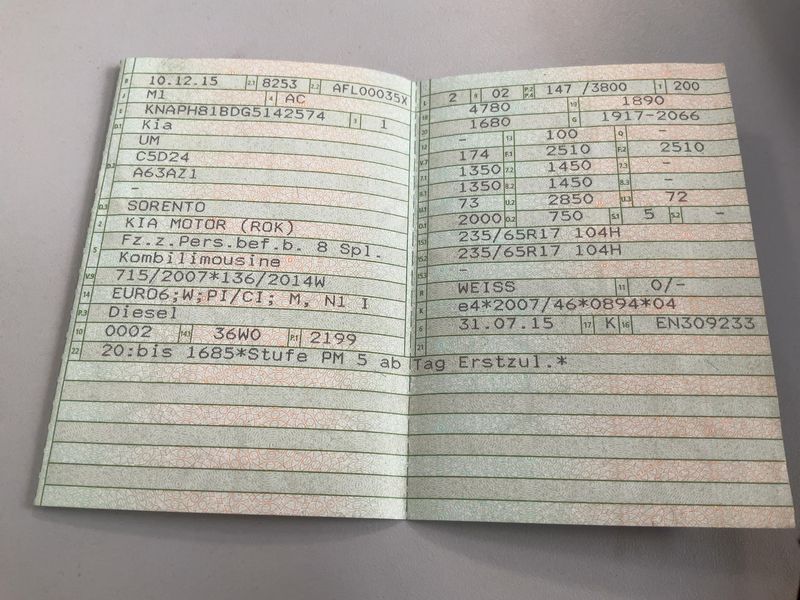 B 10.12.15 2.1 8253 2.2 AFL00035X
J M1 4 AC
E KNAPH81BDG5142574 3 1
D.1 Kia
D.2 UM
C5D24
A63AZ1
-
D.3 SORENTO
2 KIA MOTOR (ROK)
5 Fz.z.Pers.bef.b. 8 Spl.
Kombilimousine
V.9 715/2007*136/2014W
14 EURO6;W;PI/CI; M, N1 I
P.3 Diesel
10 0002 14.1 36W0 P.1 2199
22 20:bis 1685*Stufe PM 5 ab Tag Erstzul.*
L 2 9 02 P.2 P.4 147 /3800 T 200
18 4780 19 1890
20 1680 G 1917-2066
12 - 13 100 Q -
V.7 174 F.1 2510 F.2 2510
7.1 1350 7.2 1450 7.3 -
8.1 1350 8.2 1450 8.3 -
U.1 73 U.2 2850 U.3 72
O.1 2000 O.2 750 S.1 5 S.2 -
15.1 235/65R17 104H
15.2 235/65R17 104H
15.3 -
R WEISS 11 0/-
K e4*2007/46*0894*04
6 31.07.15 17 K 16 EN309233
21